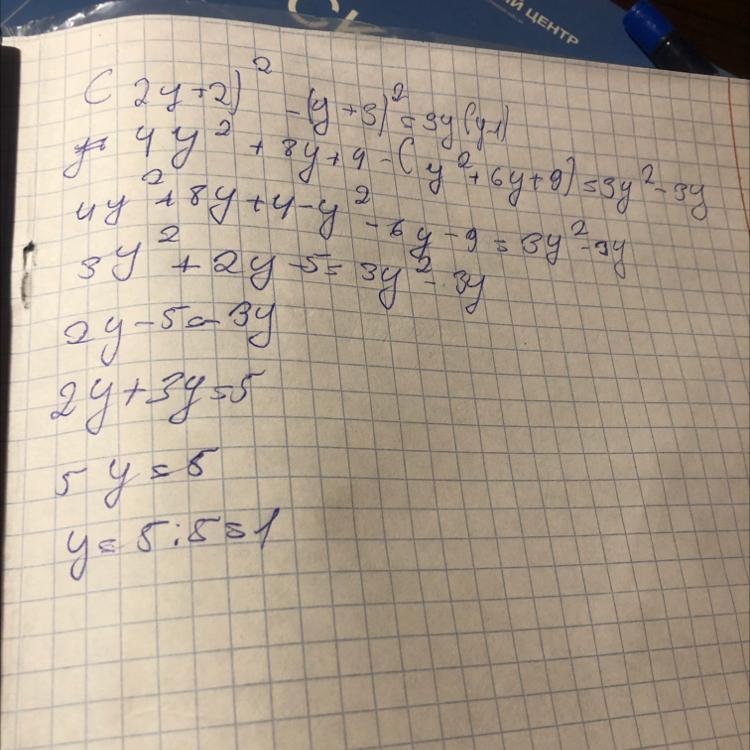 СК
ЫЙ ЦЕНТР
(2y+2)² -(y+3)² = 3y(y-1)
4y² + 8y+4 -(y²+6y+9)=3y²-3y
4y²+8y+4-y² -6y-9 = 3y²-3y
3y²+2y-5=3y²-3y
2y-5=-3y
2y+3y=5
5y=5
y=5:5=1